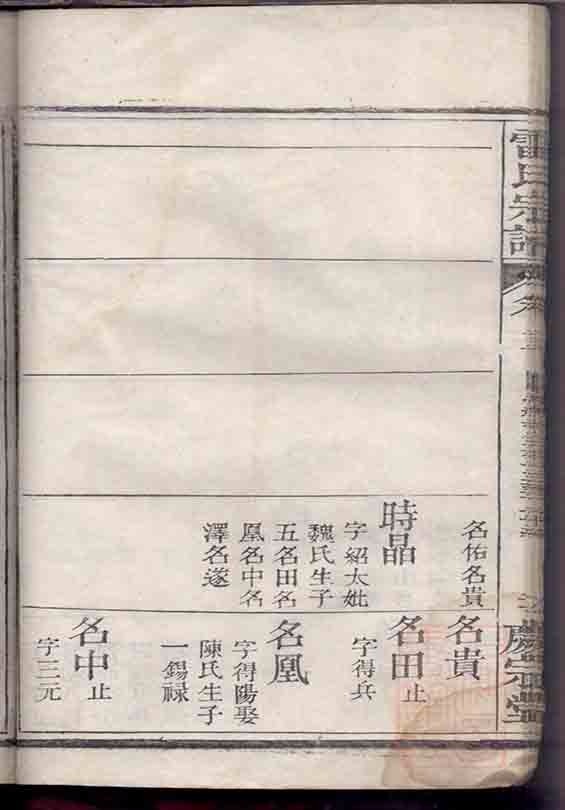 雷氏宗譜
卷
名佑名貴
時品
字紹太妣
魏氏生子
五名田名
凰名中名
澤名遂
名貴
名田止
字得兵
名凰
字得陽娶
陳氏生子
一錫禄
名中止
字三元